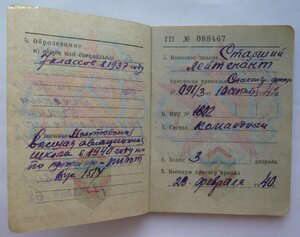 4. Образование
а) общее или специальное
7 классов в 1937 году
б) военное Молотовская
военная авиационная
школа в 1940 году
ВУС
ГП № 088467
5. Воинское звание Старший
лейтенант
присвоено приказом
№ 991/з
6. ВУС № 1602
7. Состав командный
8. Запас 3 разряда
9. Военную присягу принял
23 февраля 1940.